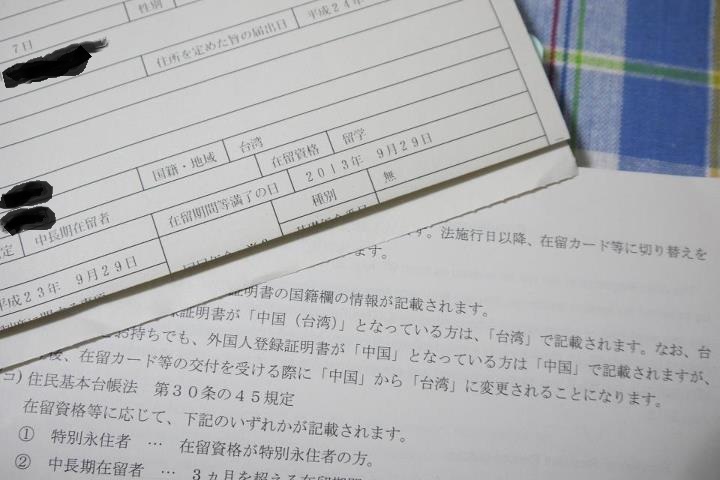 性別
7日
住所を定めた旨の届出日 平成24年
国籍・地域 台湾 在留資格 留学
中長期在留者 在留期間等満了の日 2013年 9月29日
定 種別 無
平成23年 9月29日
す。法施行日以降、在留カード等に切り替えを
ます。
証明書の国籍欄の情報が記載されます。
録証明書が「中国（台湾）」となっている方は、「台湾」で記載されます。なお、台
お持ちでも、外国人登録証明書が「中国」となっている方は「中国」で記載されますが、
後、在留カード等の交付を受ける際に「中国」から「台湾」に変更されることになります。
コ)住民基本台帳法 第30条の45規定
在留資格等に応じて、下記のいずれかが記載されます。
① 特別永住者 … 在留資格が特別永住者の方。
② 中長期在留者 … 3ヵ月を超える在留期間